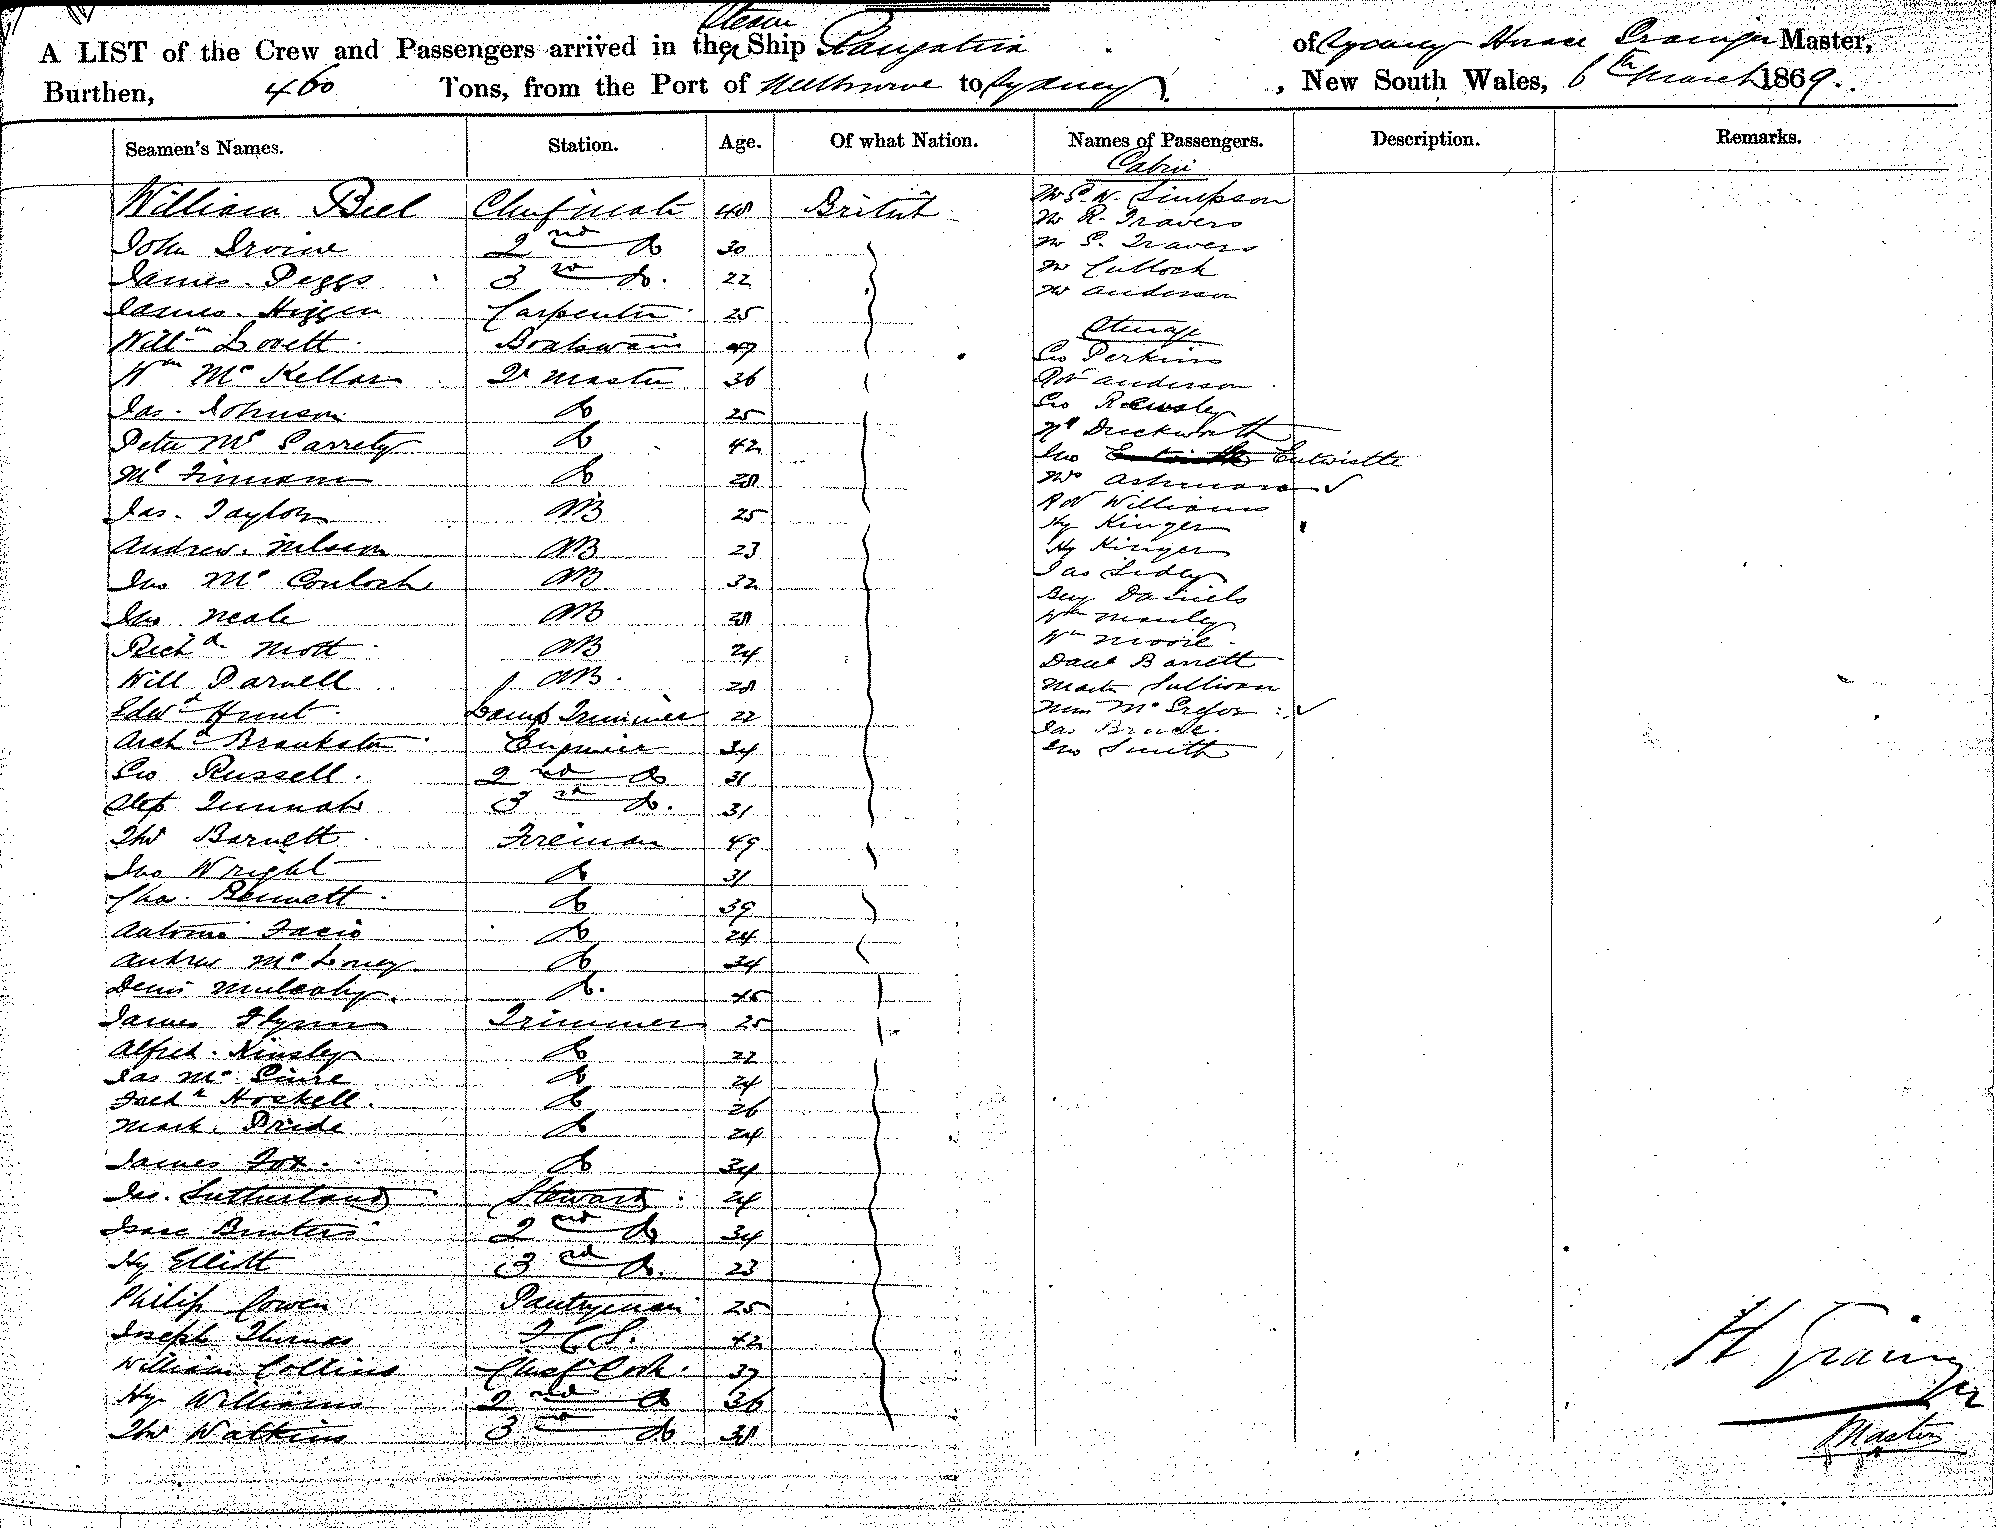 Steam
A LIST of the Crew and Passengers arrived in the Ship Rangatira of Sydney Horace Grainger Master,
Burthen, 460 Tons, from the Port of Melbourne to Sydney, New South Wales, 6th March 1869.
Seamen's Names. Station. Age. Of what Nation. Names of Passengers. Description. Remarks.
William Bell Chief mate 48 British
John Irvine 2nd Do 30
James Peggs 3rd Do. 22
James Higgin Carpenter 25
Willm Lovett Boatswain 47
Wm McKellar Qr Master 36
Jas. Johnson Do 25
Peter Mc Garrety Do 42
Ml Finnan Do 28
Jas. Taylor AB 25
Andrew Nelson AB 23
Jno Mc Couloch AB 32
Jno Neale AB 28
Richd Mott AB 24
Will Parnell AB. 28
Edwd Hunt Lamp Trimmer 22
Archd Brankston Engineer 34
Geo Russell. 2nd Do 31
3rd Do. 31
Tho Barnett Fireman 49
Jno Wright Do 31
Chas. Bennett Do 39
Antonio Facio Do 24
Andrew Mc Loney Do 34
Denis Mulcahy. Do. 45
James Flynn Trimmer 25
Alfred Kinsley Do 22
Jas Mc Guire Do 24
Hoskell. Do 26
Mark Pride Do 24
James Fox. Do 34
Jas. Sutherland Steward 24
Isaac Bunters 2nd Do 34
Hy Elliott 3rd Do. 23
Philip Cowen Pantryman 25
Joseph Thomas F C S. 42
William Collins Chief Cook. 37
Hy Williams 2nd Do 36
Tho Watkins 3rd Do 38
Cabin
Mr G. W. Simpson
Mr R. Travers
Mr G. Travers
Mr Culloch
Mr Anderson
Steerage
Geo Perkins
Robt Anderson
Geo Rewsley
Duckworth
Jno Entwistle
Mrs Ashman
Robt Williams
Hy Kinger
Hy Kinger
Jas Sidley
Benj Daniels
Wm Manley
Wm Moore.
Danl Barrett
Master Sullivan
Mc Gregor
Jas Bruce.
Jno Smith
H Grainger
Master